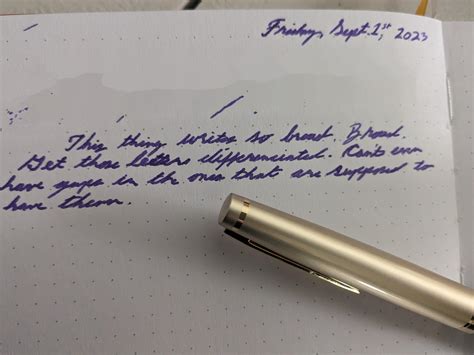 Friday, Sept. 1st, 2023
This thing writes so broad. Broad.
Get those letters differenciated. Can't even
have gaps in the ones that are supposed to
have them.